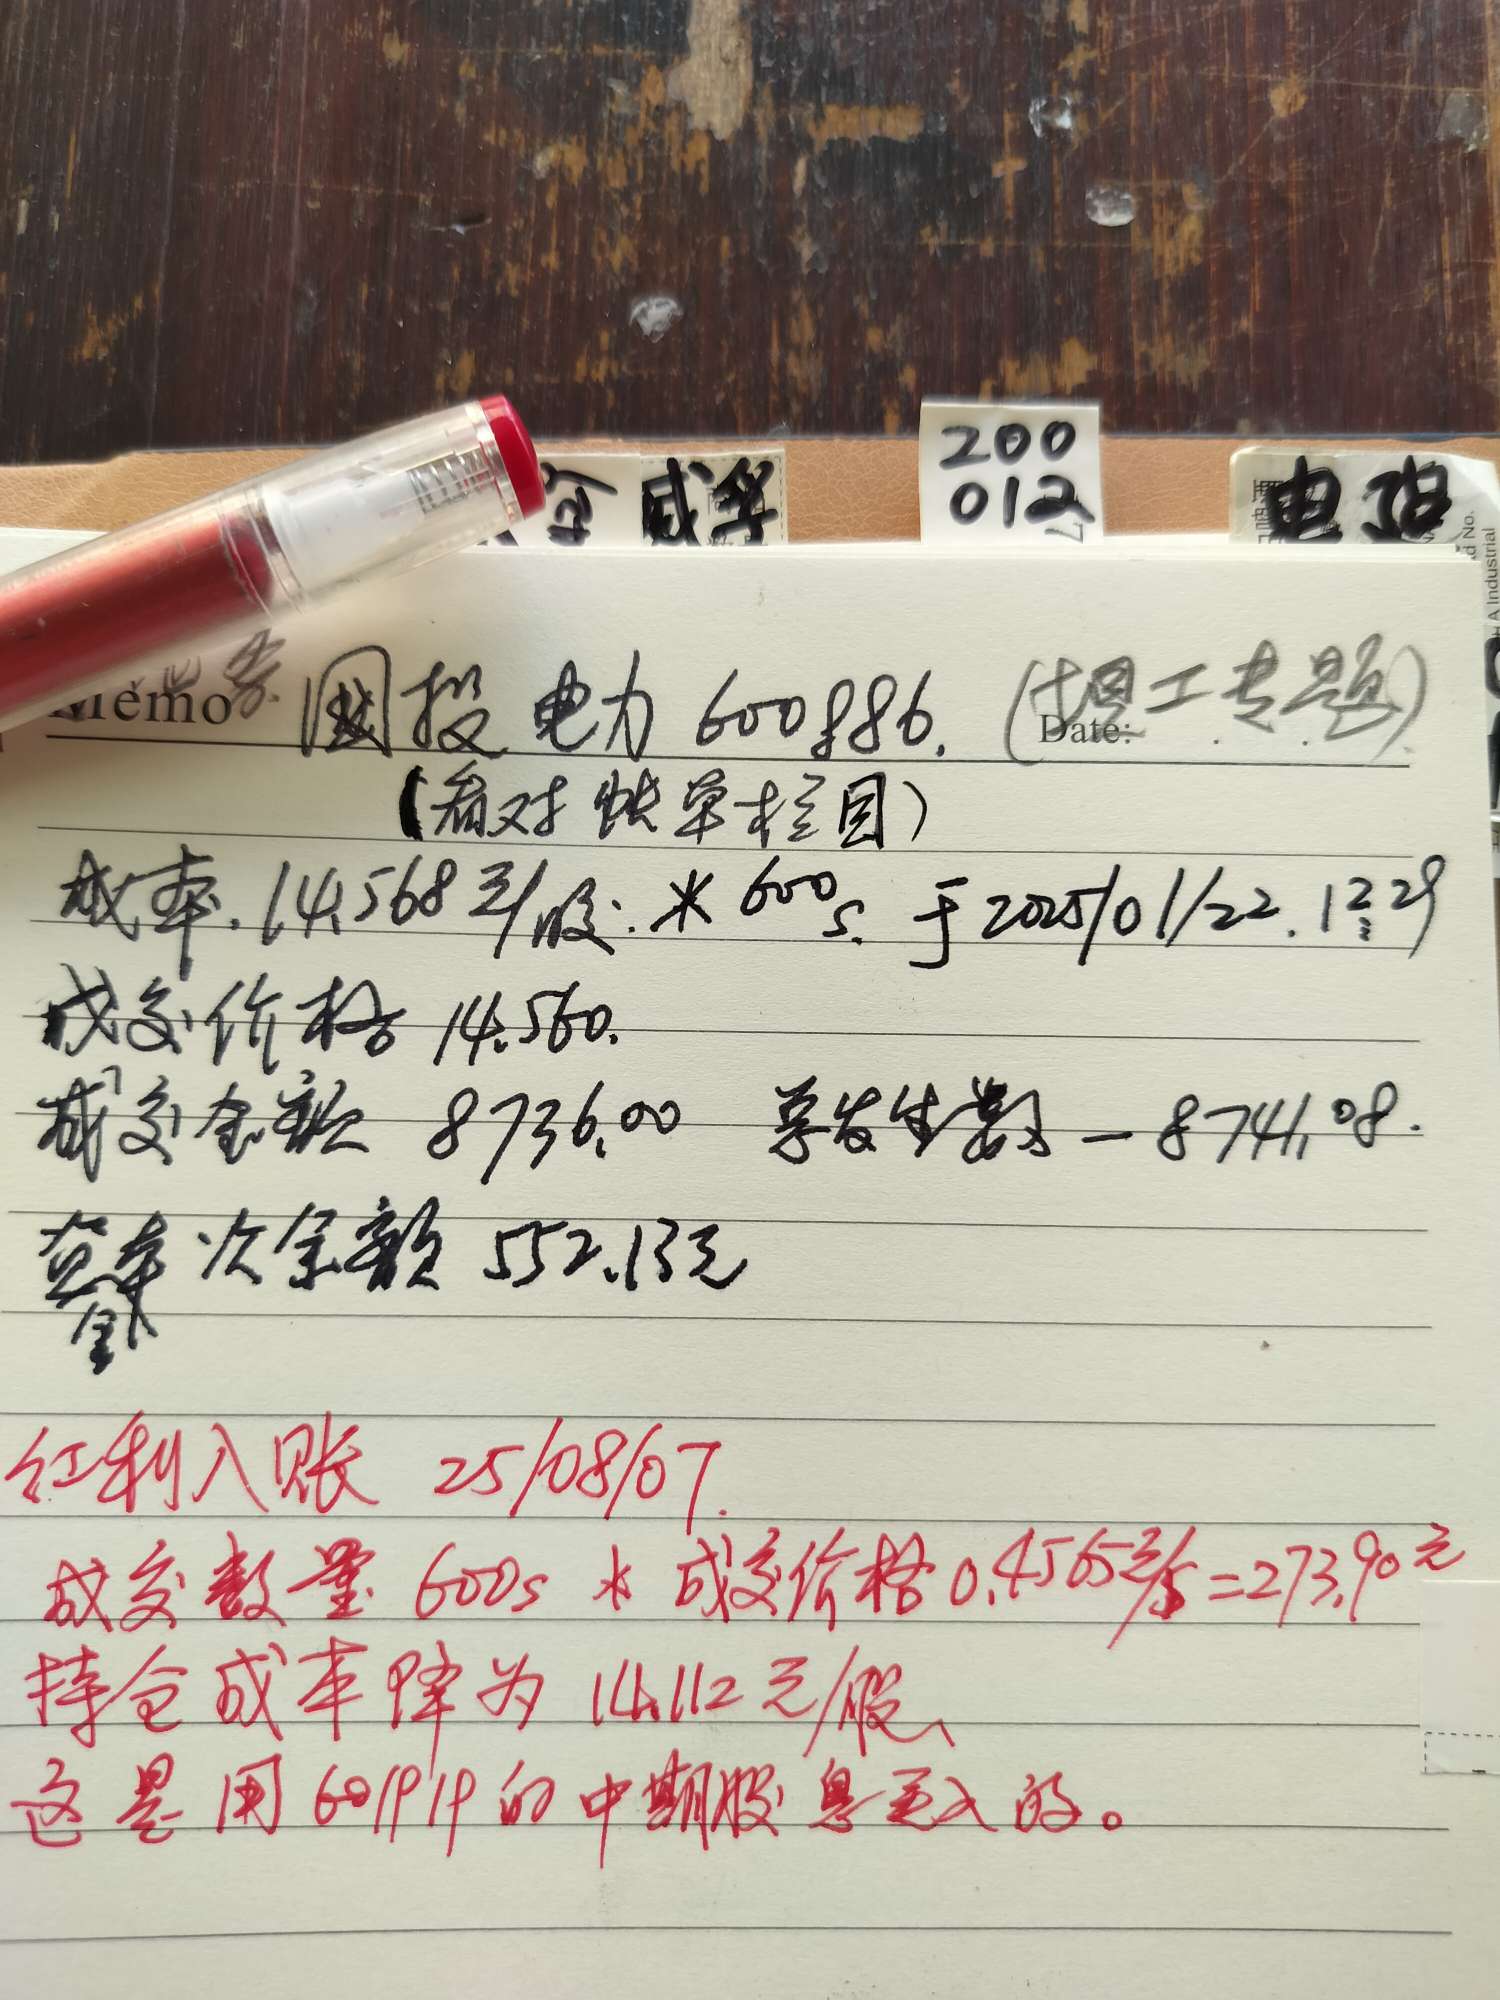 200
012
Memo 国投电力 600886. (理工专题)
Date:
(看对账单栏目)
成本. 14.568元/股. * 600s. 于2025/01/22. 12:29
成交价格 14.560.
成交金额 8736.00 总发生数 — 8741.08.
资本次余额 552.13元
金
红利入账 25/08/07.
成交数量 600s * 成交价格 0.4565元/s = 273.90元
持仓成本降为 14.112元/股、
这是用601919的中期股息买入的。